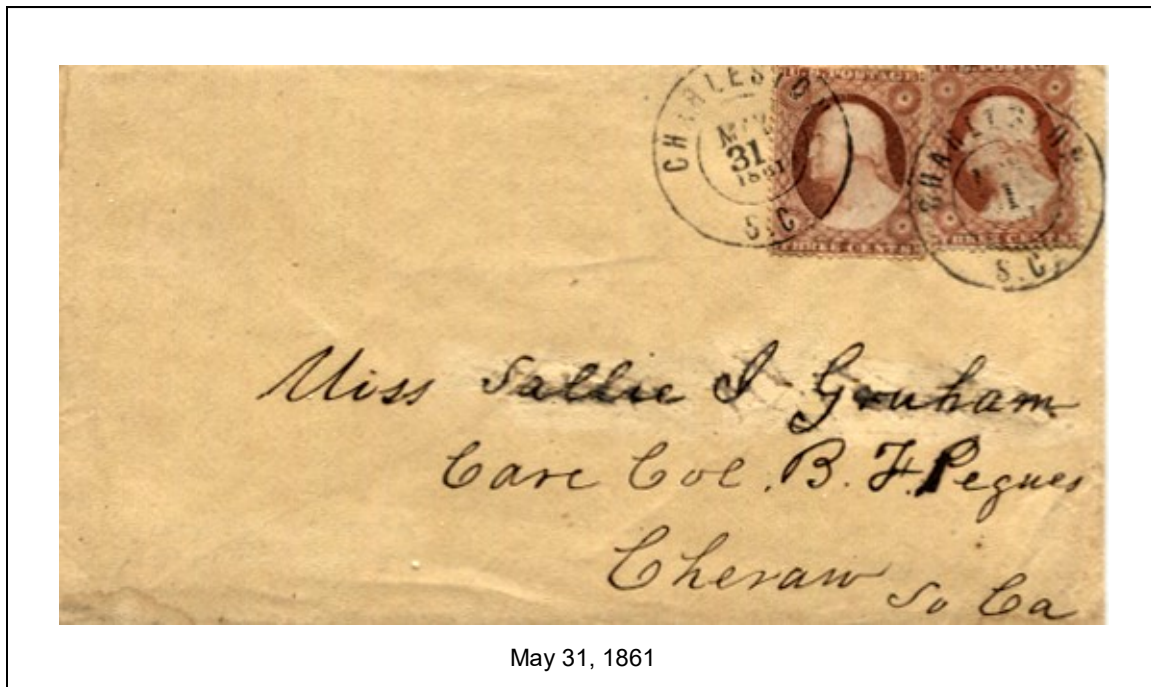 CHARLESTON
MAY
31
1861
S.C
POSTAGE
THREE CENTS
CHARLESTON
1
S.C.
THREE CENTS
Miss Sallie J Graham
Care Col. B. F. Pegues
Cheraw So Ca
May 31, 1861